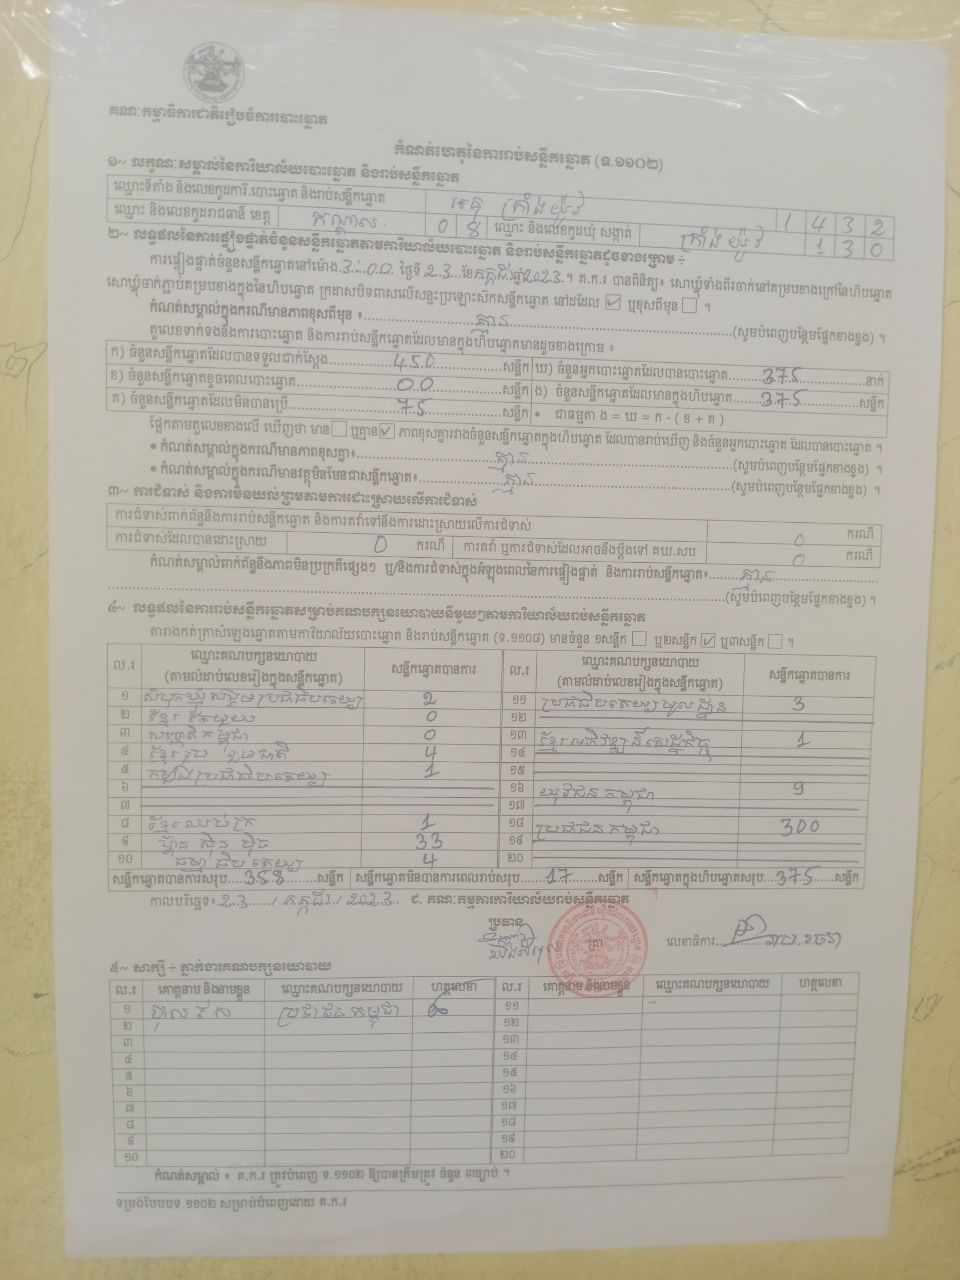 គណៈកម្មាធិការជាតិរៀបចំការបោះឆ្នោត
កំណត់ហេតុនៃការរាប់សន្លឹកឆ្នោត (ទ.១១០២)
១~ លក្ខណៈសម្គាល់នៃការិយាល័យបោះឆ្នោត និងរាប់សន្លឹកឆ្នោត
ឈ្មោះទីតាំង និងលេខកូដការិ.បោះឆ្នោត និងរាប់សន្លឹកឆ្នោត ក្រាំងយ៉ូវ 1 4 3 2
ឈ្មោះ និងលេខកូដរាជធានី ខេត្ត កណ្តាល 0 8 ឈ្មោះ និងលេខកូដឃុំ សង្កាត់ ក្រាំងយ៉ូវ 1 3 0
២~ លទ្ធផលនៃការផ្ទៀងផ្ទាត់ចំនួនសន្លឹកឆ្នោតតាមការិយាល័យបោះឆ្នោត និងរាប់សន្លឹកឆ្នោតដូចខាងក្រោម ÷
ការផ្ទៀងផ្ទាត់ចំនួនសន្លឹកឆ្នោតនៅម៉ោង 3:00 ថ្ងៃទី 23 ខែ កក្កដា ឆ្នាំ 2023 ។ គ.ក.រ បានពិនិត្យ៖ សោឃ្មុំទាំងពីរចាក់នៅគម្របខាងក្រៅនៃហិបឆ្នោត
សោឃ្មុំចាក់ភ្ជាប់គម្របខាងក្នុងនៃហិបឆ្នោត ក្រដាសបិទពាសលើសន្ទះប្រឡោះស៊កសន្លឹកឆ្នោត នៅដដែល ☑ ឬខុសពីមុន ☐ ។
កំណត់សម្គាល់ក្នុងករណីមានភាពខុសពីមុន ៖ គ្មាន (សូមបំពេញបន្ថែមផ្នែកខាងខ្នង) ។
តួលេខទាក់ទងនឹងការបោះឆ្នោត និងការរាប់សន្លឹកឆ្នោតដែលមានក្នុងហិបឆ្នោតមានដូចខាងក្រោម ៖
ក) ចំនួនសន្លឹកឆ្នោតដែលបានទទួលជាក់ស្តែង 450 សន្លឹក ឃ) ចំនួនអ្នកបោះឆ្នោតដែលបានបោះឆ្នោត 375 នាក់
ខ) ចំនួនសន្លឹកឆ្នោតខូចពេលបោះឆ្នោត 00 សន្លឹក ង) ចំនួនសន្លឹកឆ្នោតដែលមានក្នុងហិបឆ្នោត 375 សន្លឹក
គ) ចំនួនសន្លឹកឆ្នោតដែលមិនបានប្រើ 75 សន្លឹក • ជាធម្មតា ង = ឃ = ក - ( ខ + គ )
ផ្អែកតាមតួលេខខាងលើ ឃើញថា មាន ☐ ឬគ្មាន ☑ ភាពខុសគ្នារវាងចំនួនសន្លឹកឆ្នោតក្នុងហិបឆ្នោត ដែលបានរាប់ឃើញ និងចំនួនអ្នកបោះឆ្នោត ដែលបានបោះឆ្នោត ។
• កំណត់សម្គាល់ក្នុងករណីមានភាពខុសគ្នា៖ គ្មាន (សូមបំពេញបន្ថែមផ្នែកខាងខ្នង) ។
• កំណត់សម្គាល់ក្នុងករណីមានវត្ថុមិនមែនជាសន្លឹកឆ្នោត៖ គ្មាន (សូមបំពេញបន្ថែមផ្នែកខាងខ្នង) ។
៣~ ការជំទាស់ និងការមិនយល់ព្រមតាមការដោះស្រាយលើការជំទាស់
ការជំទាស់ពាក់ព័ន្ធនឹងការរាប់សន្លឹកឆ្នោត និងការតវ៉ាទៅនឹងការដោះស្រាយលើការជំទាស់ 0 ករណី
ការជំទាស់ដែលបានដោះស្រាយ 0 ករណី ការតវ៉ា ឬការជំទាស់ដែលអាចនឹងប្តឹងទៅ គឃ.សប 0 ករណី
កំណត់សម្គាល់ពាក់ព័ន្ធនឹងភាពមិនប្រក្រតីផ្សេងៗ ឬ/និងការជំទាស់ក្នុងអំឡុងពេលនៃការផ្ទៀងផ្ទាត់ និងការរាប់សន្លឹកឆ្នោត៖ គ្មាន
(សូមបំពេញបន្ថែមផ្នែកខាងខ្នង) ។
៤~ លទ្ធផលនៃការរាប់សន្លឹកឆ្នោតសម្រាប់គណបក្សនយោបាយនីមួយៗតាមការិយាល័យរាប់សន្លឹកឆ្នោត
តារាងកត់ត្រាសំឡេងឆ្នោតតាមការិយាល័យបោះឆ្នោត និងរាប់សន្លឹកឆ្នោត (ទ.១១០៨) មានចំនួន ១សន្លឹក ☐ ឬ២សន្លឹក ☑ ឬ៣សន្លឹក ☐ ។
ល.រ ឈ្មោះគណបក្សនយោបាយ សន្លឹកឆ្នោតបានការ ល.រ ឈ្មោះគណបក្សនយោបាយ សន្លឹកឆ្នោតបានការ
(តាមលំដាប់លេខរៀងក្នុងសន្លឹកឆ្នោត) (តាមលំដាប់លេខរៀងក្នុងសន្លឹកឆ្នោត)
១ សំបុកឃ្មុំសង្គមប្រជាធិបតេយ្យ 2 ១១ ប្រជាធិបតេយ្យមូលដ្ឋាន 3
២ ខ្មែររួបរួម 0 ១២
៣ សញ្ជាតិកម្ពុជា 0 ១៣ ខ្មែរអភិវឌ្ឍន៍សេដ្ឋកិច្ច 1
៤ ខ្មែររួបរួមជាតិ 4 ១៤
៥ កម្លាំងប្រជាធិបតេយ្យ 1 ១៥
៦ ១៦ យុវជនកម្ពុជា 9
៧ ១៧
៨ ខ្មែរឈប់ក្រ 1 ១៨ ប្រជាជនកម្ពុជា 300
៩ ហ៊្វុនស៊ិនប៉ិច 33 ១៩
១០ ធម្មាធិបតេយ្យ 4 ២០
សន្លឹកឆ្នោតបានការសរុប 358 សន្លឹក សន្លឹកឆ្នោតមិនបានការពេលរាប់សរុប 17 សន្លឹក សន្លឹកឆ្នោតក្នុងហិបឆ្នោតសរុប 375 សន្លឹក
កាលបរិច្ឆេទ៖ 23 / កក្កដា / 2023 ជ. គណៈកម្មការការិយាល័យរាប់សន្លឹកឆ្នោត
ប្រធាន ត្រា លេខាធិការ
៥~ សាក្សី ÷ ភ្នាក់ងារគណបក្សនយោបាយ
ល.រ គោត្តនាម និងនាមខ្លួន ឈ្មោះគណបក្សនយោបាយ ហត្ថលេខា ល.រ គោត្តនាម និងនាមខ្លួន ឈ្មោះគណបក្សនយោបាយ ហត្ថលេខា
១ ប្រជាជនកម្ពុជា ១១
២ ១២
៣ ១៣
៤ ១៤
៥ ១៥
៦ ១៦
៧ ១៧
៨ ១៨
៩ ១៩
១០ ២០
កំណត់សម្គាល់ ៖ គ.ក.រ ត្រូវបំពេញ ទ.១១០២ ឱ្យបានត្រឹមត្រូវ ចំនួន ៣ច្បាប់ ។
ទម្រង់បែបបទ ១១០២ សម្រាប់បំពេញដោយ គ.ក.រ